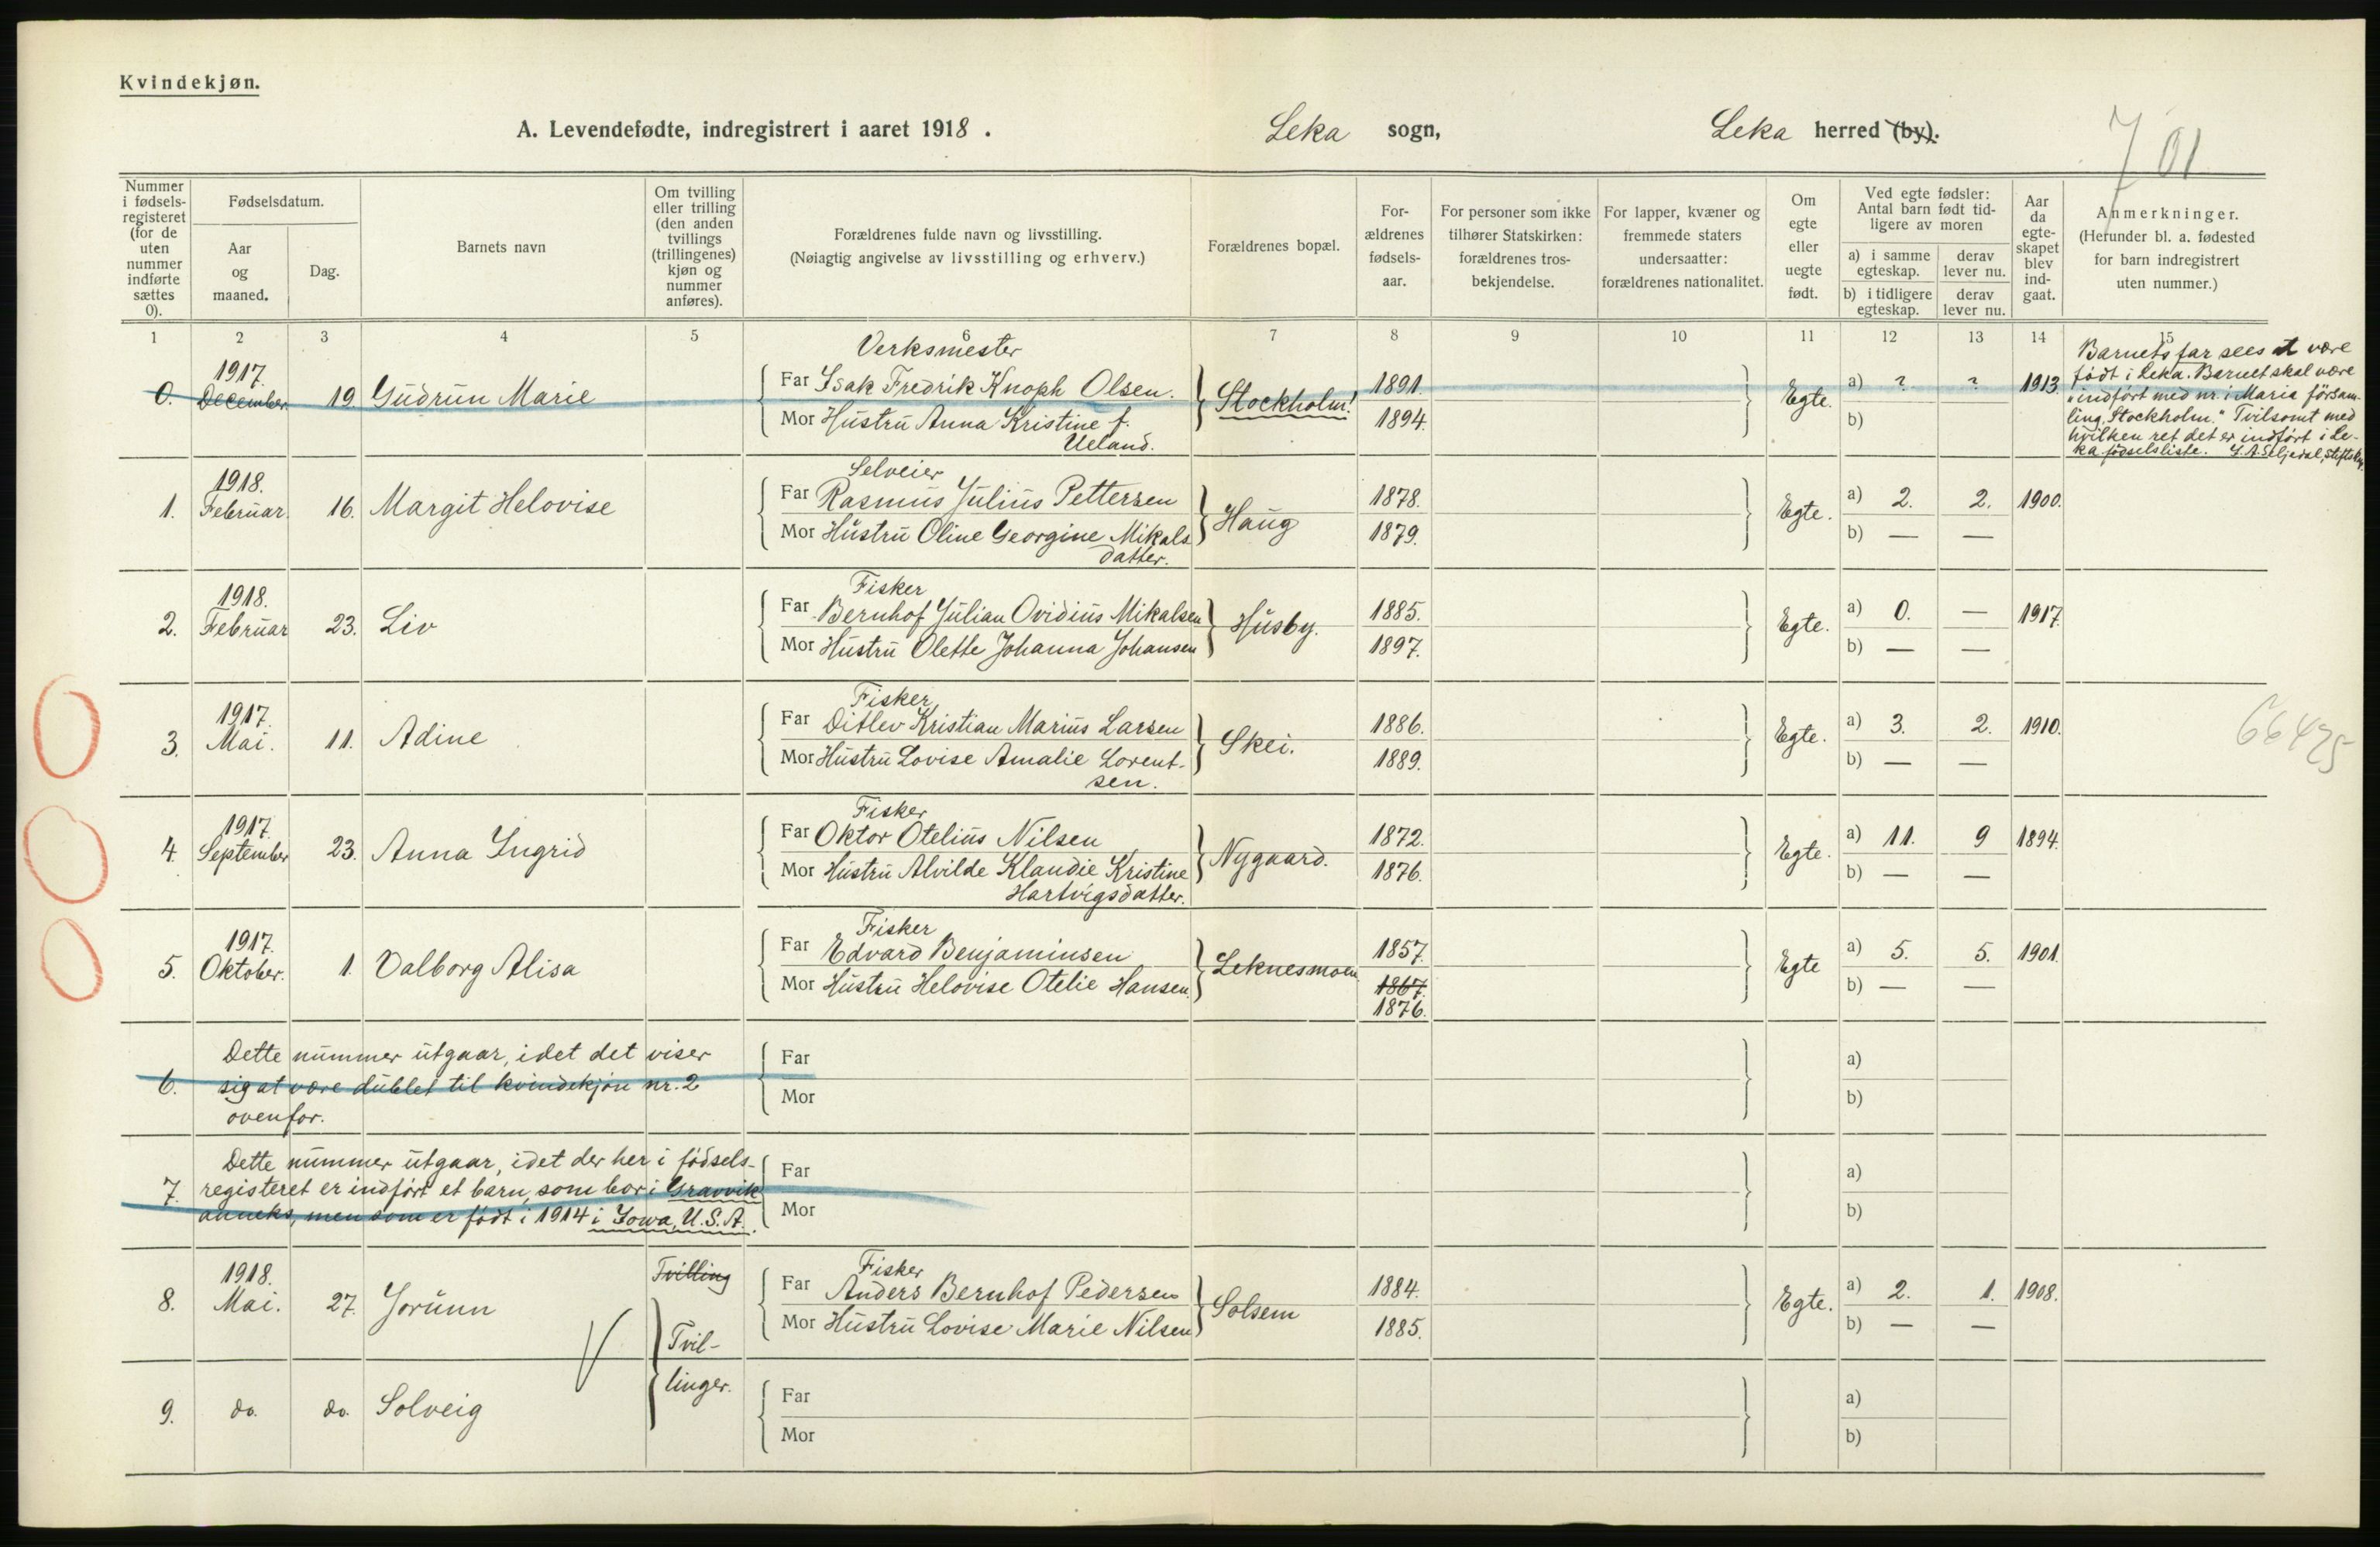 Kvindekjøn.
A. Levendefødte, indregistrert i aaret 1918. Leka sogn, Leka herred (by).
7 01
Nummer i fødselsregisteret (for de uten nummer indførte sættes 0).
Fødselsdatum.
Aar og maaned.
Dag.
Barnets navn
Om tvilling eller trilling (den anden tvillings (trillingenes) kjøn og nummer anføres).
Forældrenes fulde navn og livsstilling.
(Nøiagtig angivelse av livsstilling og erhverv.)
Forældrenes bopæl.
Forældrenes fødselsaar.
For personer som ikke tilhører Statskirken: forældrenes trosbekjendelse.
For lapper, kvæner og fremmede staters undersaatter: forældrenes nationalitet.
Om egte eller uegte født.
Ved egte fødsler: Antal barn født tidligere av moren
a) i samme egteskap.
derav lever nu.
b) i tidligere egteskap.
derav lever nu.
Aar da egteskapet blev indgaat.
Anmerkninger.
(Herunder bl. a. fødested for barn indregistrert uten nummer.)
1 2 3 4 5 6 7 8 9 10 11 12 13 14 15
Verksmester
0. 1917. December 19. Gudrun Marie
Far Isak Fredrik Knoph Olsen.
Mor Hustru Anna Kristine f. Ueland.
Stockholm! 1891. 1894. Egte. a) ? ? 1913. b)
Barnets far sees at være
født i Leka. Barnet skal være
"indført med nr. i Maria försam-
ling, Stockholm." Tvilsomt med
hvilken ret det er indført i Le-
ka fødselsliste.
Selveier
1. 1918. Februar. 16. Margit Helovise
Far Rasmus Julius Pettersen
Mor Hustru Oline Georgine Mikalsdatter.
Haug 1878. 1879. Egte. a) 2. 2. 1900. b) — —
Fisker
2. 1918. Februar 23. Liv
Far Bernhof Julian Ovidius Mikalsen
Mor Hustru Olette Johanna Johansen
Husby. 1885. 1897. Egte. a) 0. — 1917. b) — —
Fisker
3. 1917. Mai. 11. Adine
Far Ditlev Kristian Marius Larsen
Mor Hustru Lovise Amalie Lorentsen.
Skei. 1886. 1889. Egte. a) 3. 2. 1910. b) — —
66425
Fisker
4. 1917. September 23. Anna Ingrid
Far Oktor Otelius Nilsen
Mor Hustru Alvilde Klaudie Kristine Hartvigsdatter.
Nygaard. 1872. 1876. Egte. a) 11. 9 1894. b) — —
Fisker
5. 1917. Oktober. 1. Valborg Alisa
Far Edvard Benjaminsen
Mor Hustru Helovise Otelie Hansen.
Leknesmoen 1857. 1867. 1876. Egte a) 5. 5. 1901. b) — —
6. Dette nummer utgaar, idet det viser
sig at være dublet til kvindekjøn nr. 2
ovenfor.
Far
Mor
a)
b)
7. Dette nummer utgaar, idet der her i fødsels-
registeret er indført et barn, som bor i Gravvik
anneks, men som er født i 1914 i Iowa, U.S.A.
Far
Mor
a)
b)
Fisker
8. 1918. Mai. 27. Jorunn Tvilling
Far Anders Bernhof Pedersen
Mor Hustru Lovise Marie Nilsen
Solsem 1884. 1885. Egte. a) 2. 1. 1908. b) — —
Tvil-
linger.
9. do. do. Solveig
Far
Mor
a)
b)